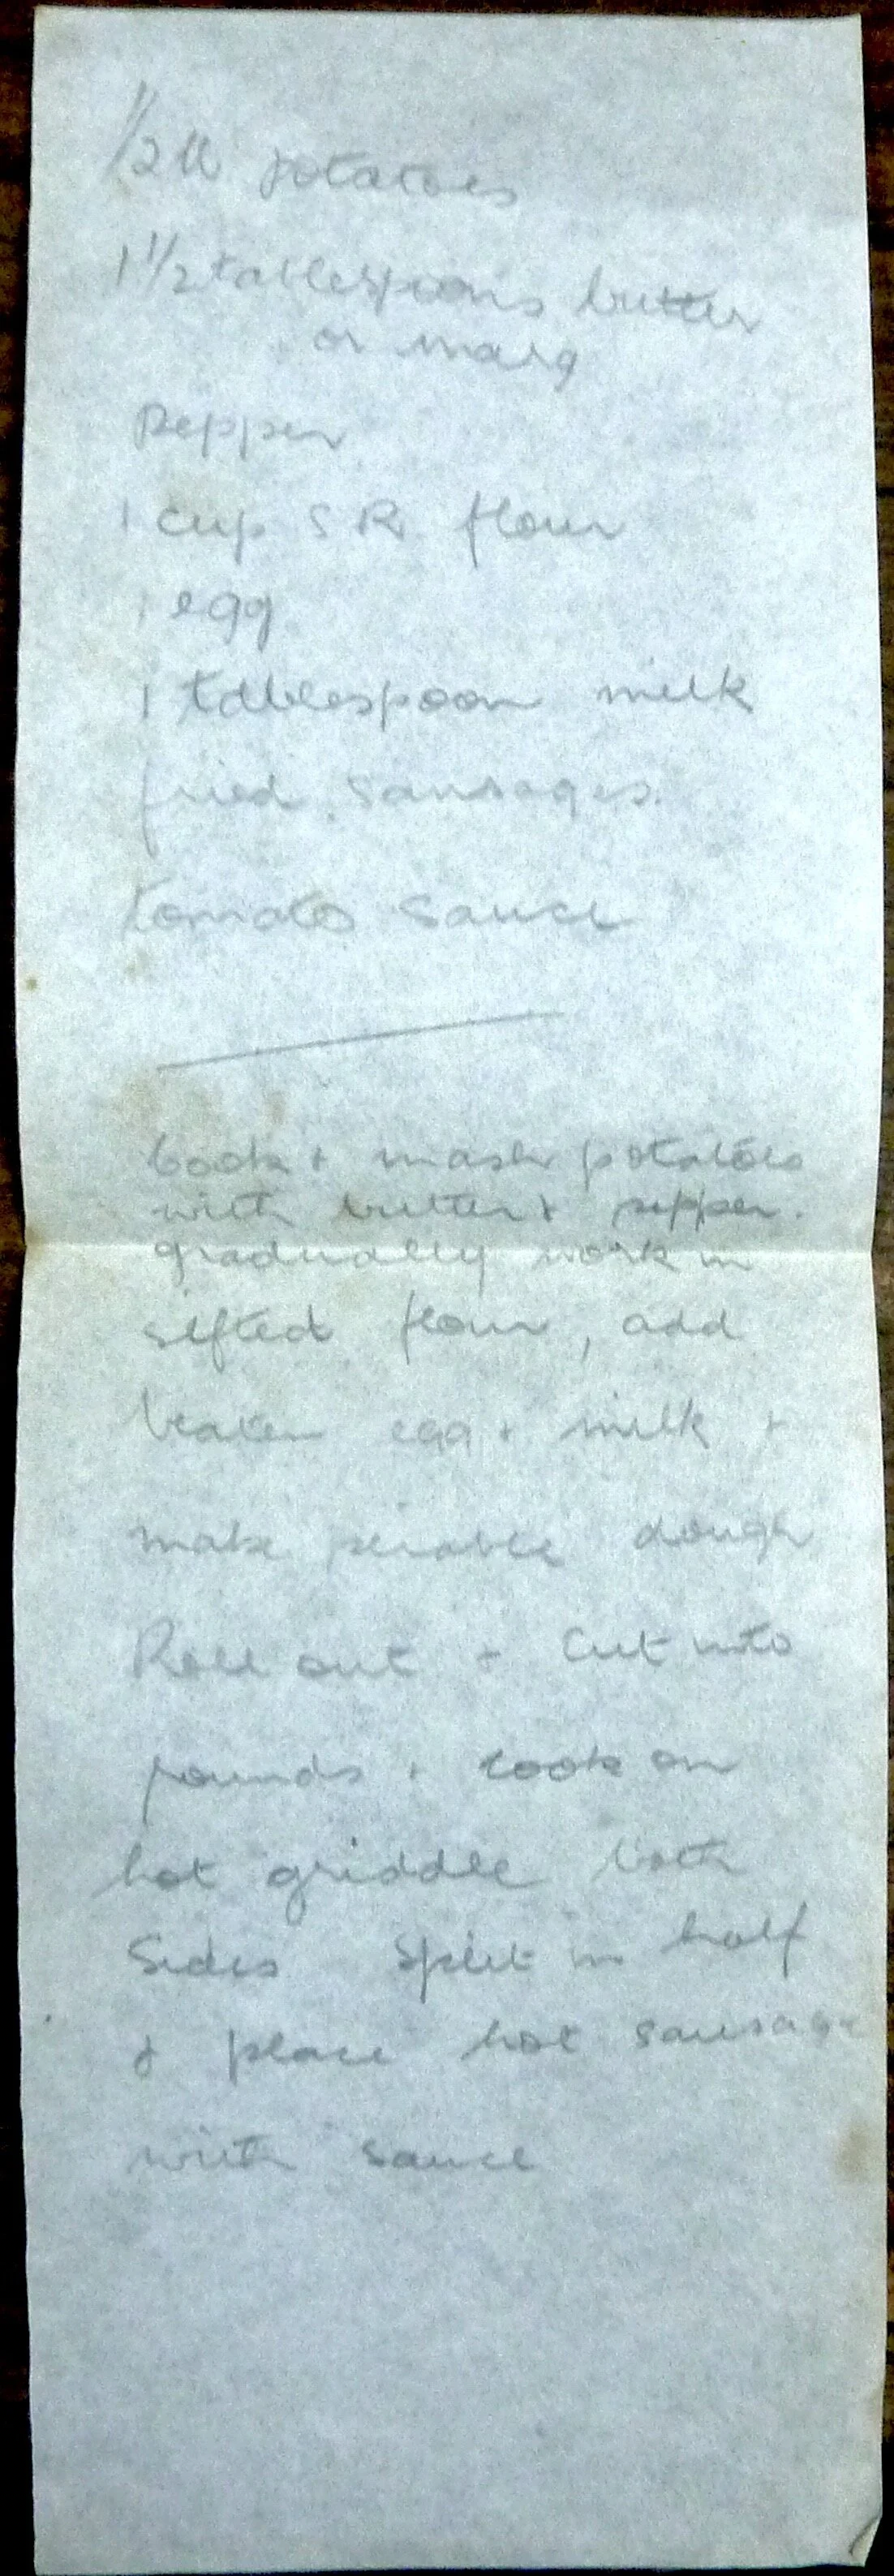 1/2 lb potatoes
1 1/2 tablespoons butter
or marg
Pepper
1 cup S R flour
1 egg
1 tablespoon milk
fried sausages.
tomato sauce
Cook + mash potatoes
with butter & pepper.
gradually work in
sifted flour, add
beaten egg + milk +
make dough
Roll out + cut into
rounds + cook on
hot griddle both
Sides Split in half
& place hot sausage
with sauce